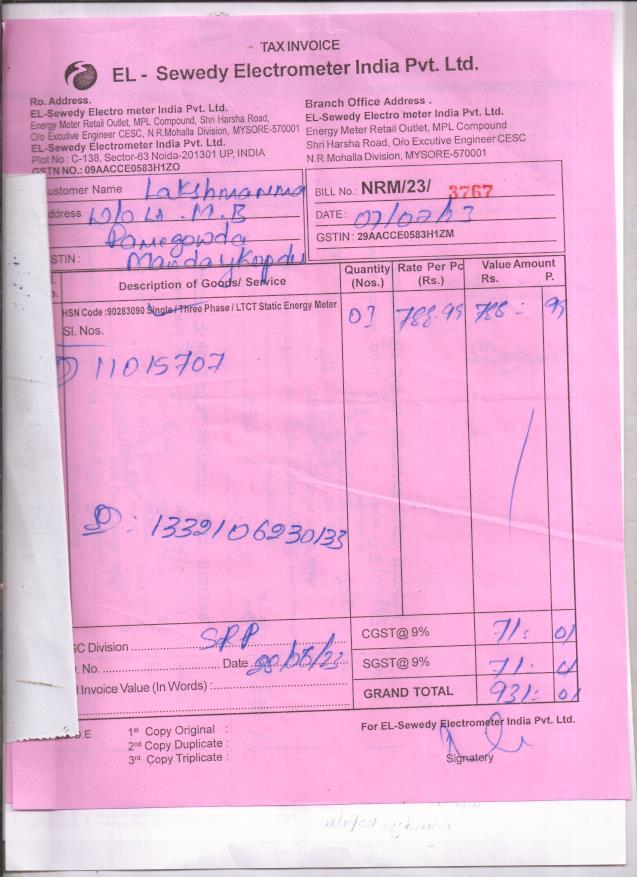 TAX INVOICE
EL - Sewedy Electrometer India Pvt. Ltd.
Ro. Address.
EL-Sewedy Electro meter India Pvt. Ltd.
Energy Meter Retail Outlet, MPL Compound, Shri Harsha Road,
O/o Excutive Engineer CESC, N.R.Mohalla Division, MYSORE-570001
EL-Sewedy Electrometer India Pvt. Ltd.
Plot No : C-138, Sector-63 Noida-201301 UP, INDIA
GSTN NO.: 09AACCE0583H1ZO
Branch Office Address .
EL-Sewedy Electro meter India Pvt. Ltd.
Energy Meter Retail Outlet, MPL Compound
Shri Harsha Road, O/o Excutive Engineer CESC
N.R.Mohalla Division, MYSORE-570001
ustomer Name Lakshmamma
ddress W/o M.B
Ramegowda
STIN :
BILL No.: NRM/23/ 3767
DATE :
GSTIN : 29AACCE0583H1ZM
Description of Goods/ Service Quantity (Nos.) Rate Per Pc (Rs.) Value Amount Rs. P.
HSN Code :90283090 Single / Three Phase / LTCT Static Energy Meter 01 788.99 788 : 99
Sl. Nos.
11015707
1332106230133
SC Division
CGST@ 9% 71 : 01
. No. Date
SGST@ 9% 71
l Invoice Value (In Words) :
GRAND TOTAL 931 : 01
.E
For EL-Sewedy Electrometer India Pvt. Ltd.
1st Copy Original :
2nd Copy Duplicate :
3rd Copy Triplicate :
Signatory